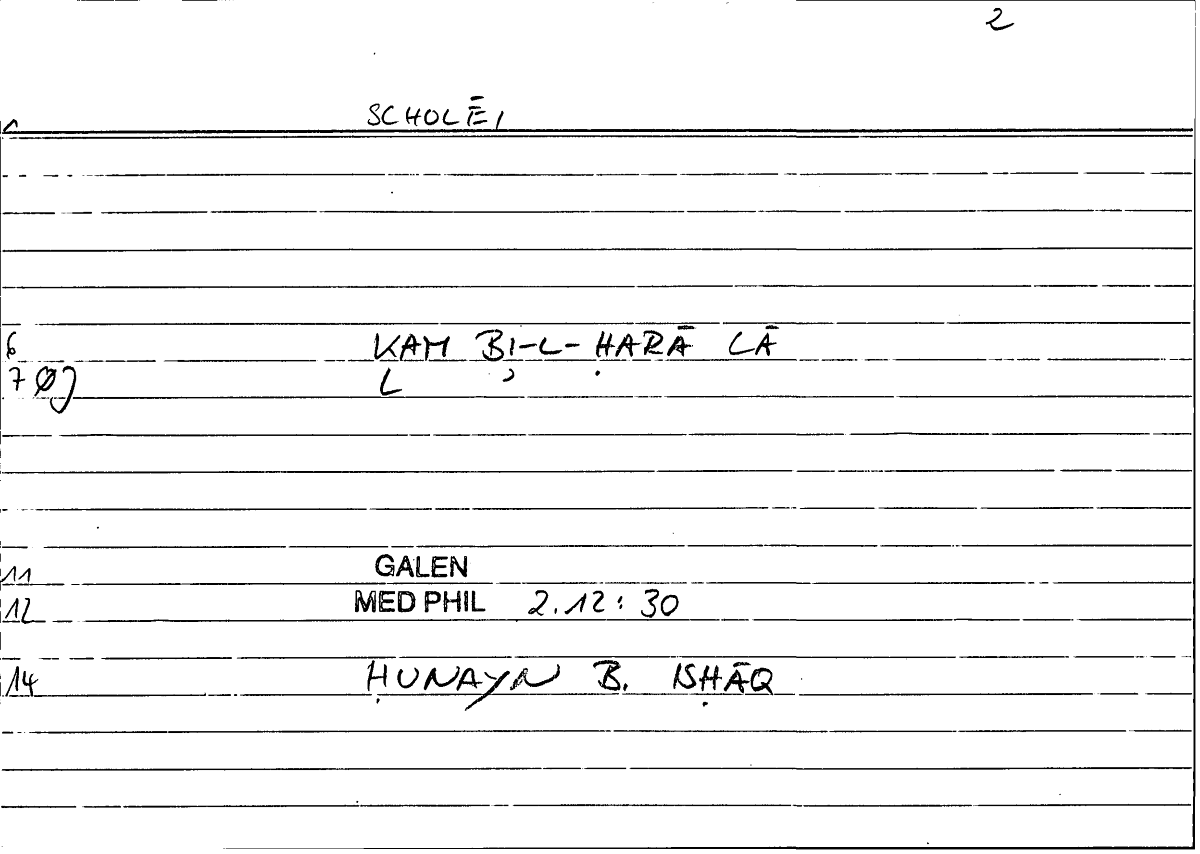 2
1 SCHOLĒI
6 KAM BI-L-ḤARĀ LĀ
7 Ø
11 GALEN
12 MED PHIL 2.12: 30
14 ḤUNAYN B. ISḤĀQ